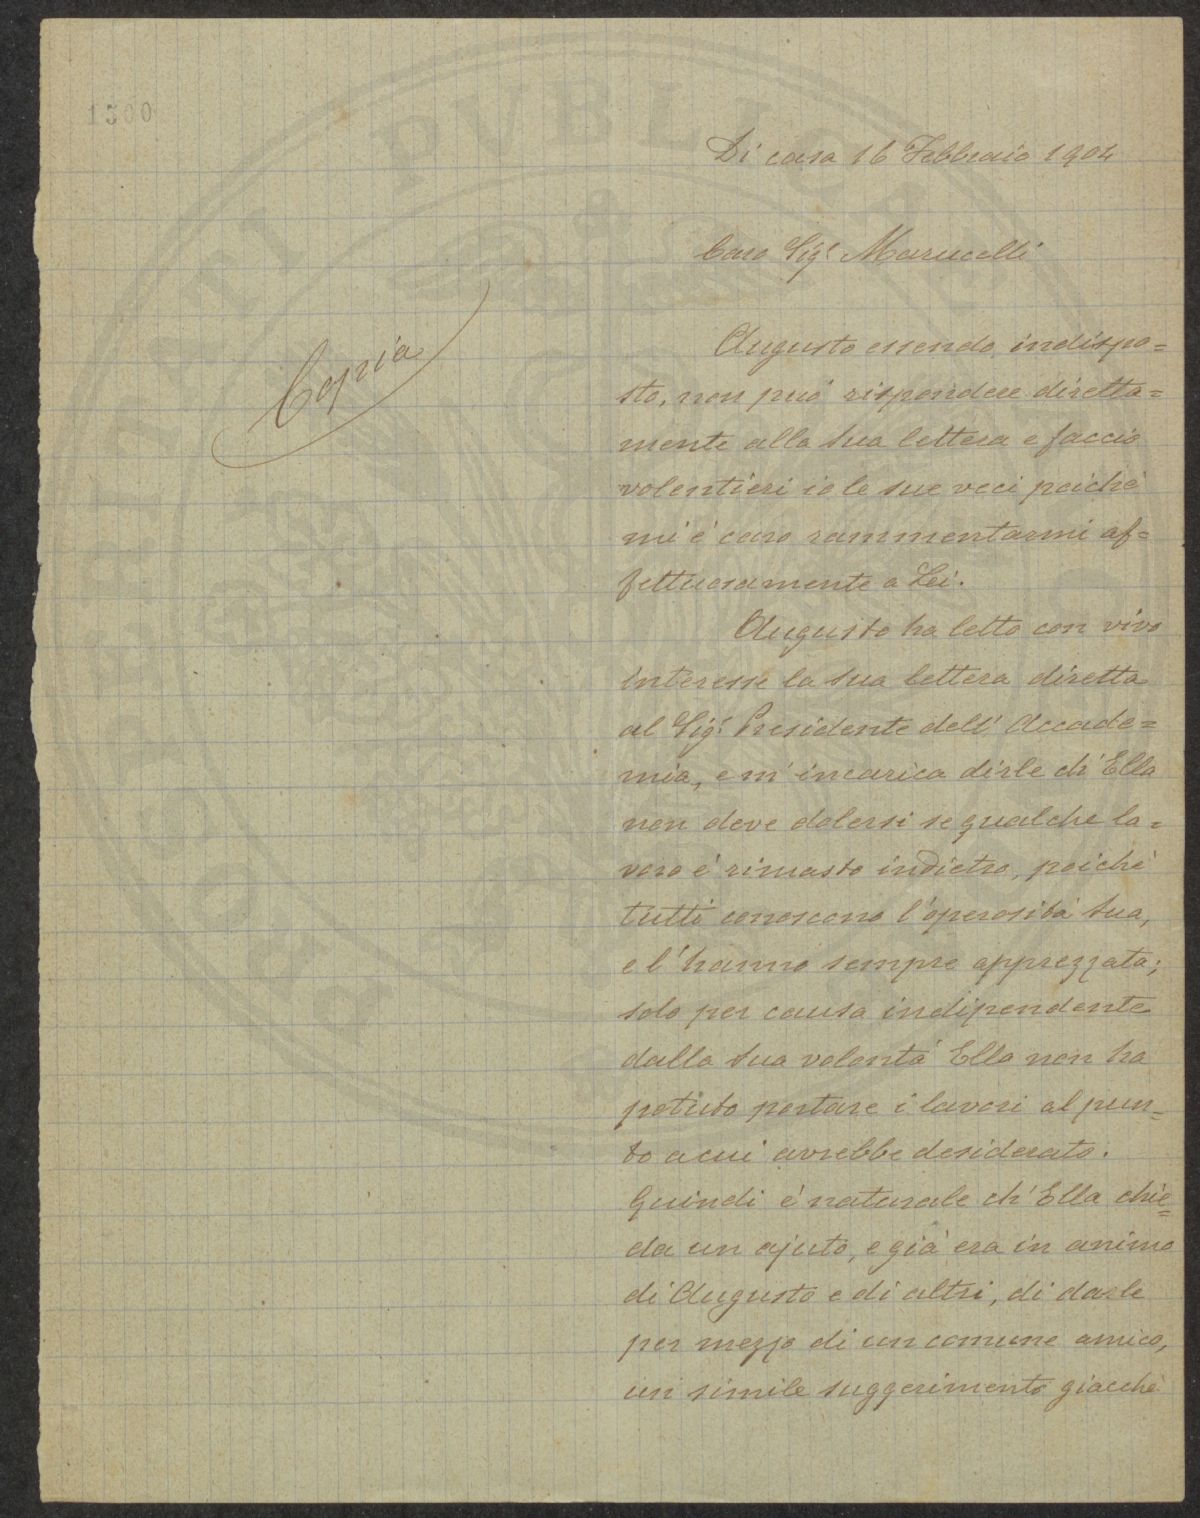 1300
Di casa 16 Febbraio 1904
Caro Sigr Marucelli
Copia
Augusto essendo indispo=
sto, non può rispondere diretta=
mente alla Sua lettera e faccio
volentieri io le sue veci poichè
mi è caro rammentarmi af=
fettuosamente a Lei.
Augusto ha letto con vivo
interesse la Sua lettera diretta
al Sigr Presidente dell' Accade=
mia, e m' incarica dirle ch' Ella
non deve dolersi se qualche la=
voro è rimasto indietro, poichè
tutti conoscono l'operosità Sua,
e l' hanno sempre apprezzata;
solo per causa indipendente
dalla Sua volontà Ella non ha
potuto portare i lavori al pun=
to a cui avrebbe desiderato.
Quindi è naturale ch' Ella chie=
da un ajuto, e già era in animo
di Augusto e di altri, di darle
per mezzo di un comune amico,
un simile suggerimento giacchè